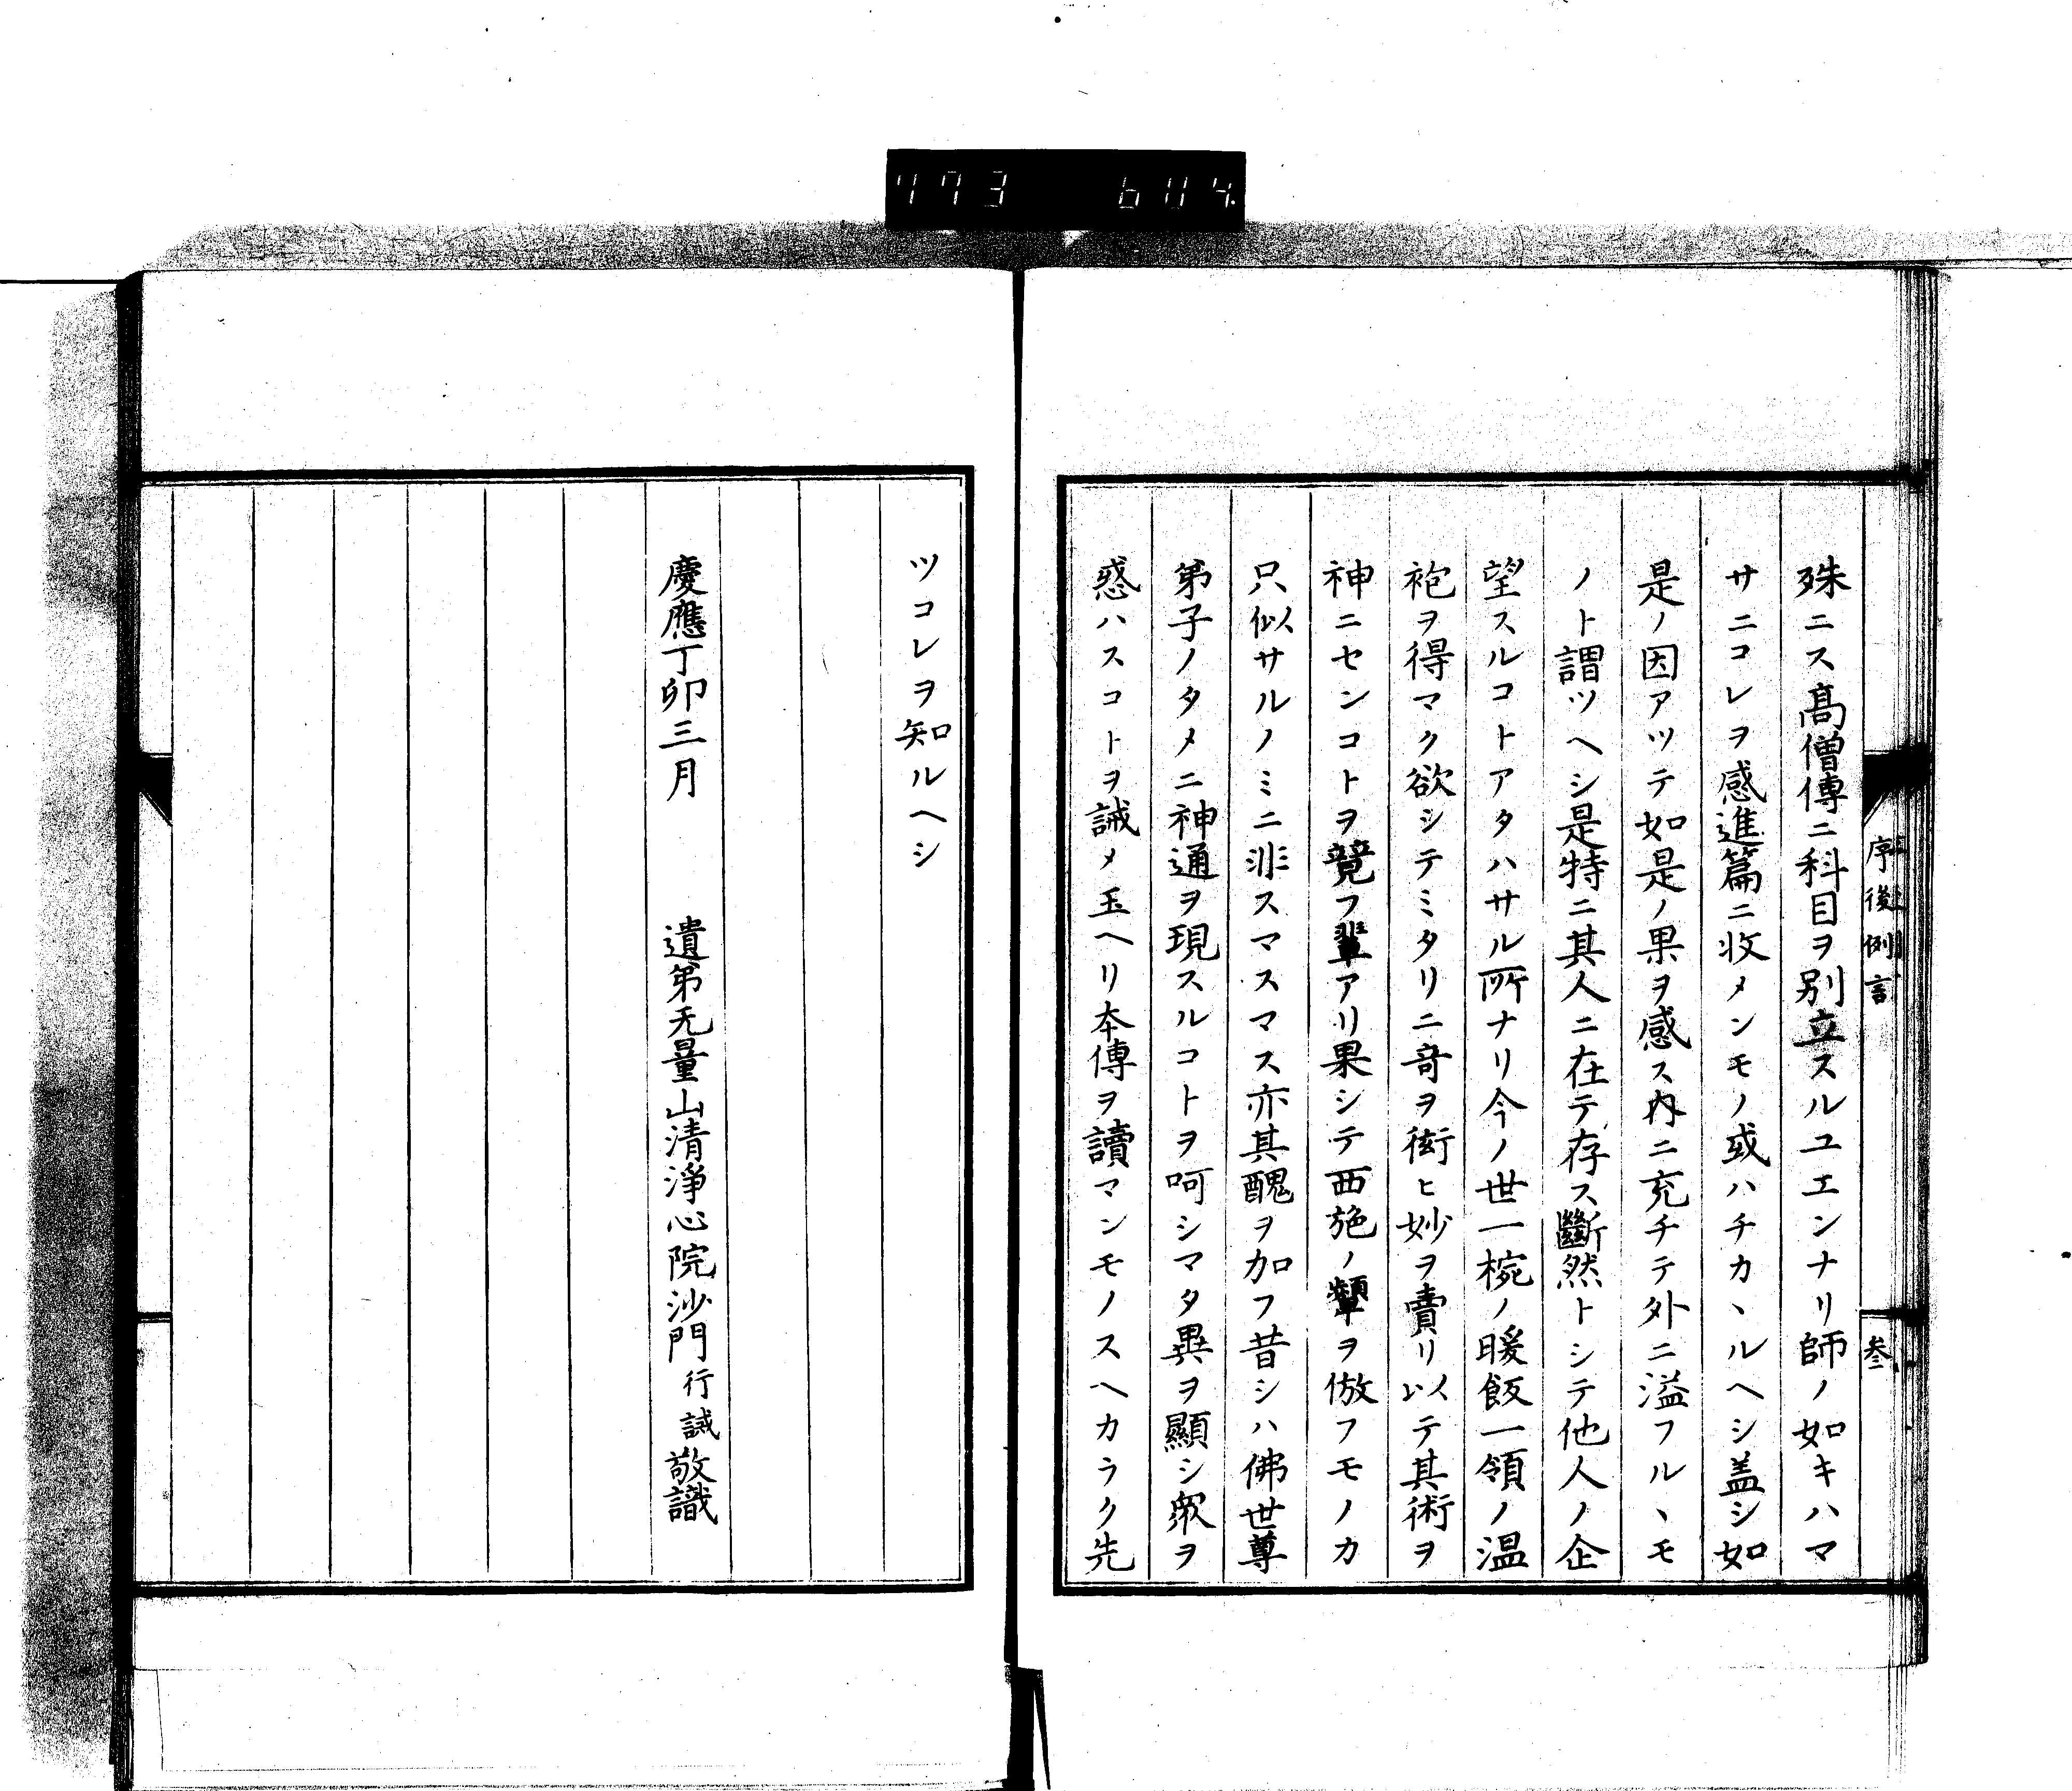 473 604
序後例言
叁
殊ニス髙僧傳ニ科目ヲ別立スルユエンナリ師ノ如キハマ
サニコレヲ感進篇ニ收メンモノ或ハチカヽルヘシ盖シ如
是ノ因アツテ如是ノ果ヲ感ス内ニ充チテ外ニ溢フルヽモ
ノト謂ツヘシ是特ニ其人ニ在テ存ス斷然トシテ他人ノ企
望スルコトアタハサル所ナリ今ノ世一椀ノ暖飯一領ノ温
袍ヲ得マク欲シテミタリニ竒ヲ衒ヒ妙ヲ賣リ以テ其術ヲ
神ニセンコトヲ競フ輩アリ果シテ西施ノ顰ヲ倣フモノカ
只似サルノミニ非スマスマス亦其醜ヲ加フ昔シハ佛世尊
第子ノタメニ神通ヲ現スルコトヲ呵シマタ異ヲ顯シ衆ヲ
惑ハスコトヲ誡メ玉ヘリ本傳ヲ讀マンモノスヘカラク先
ツコレヲ知ルヘシ
慶應丁卯三月　遺弟无量山清淨心院沙門行誡敬識